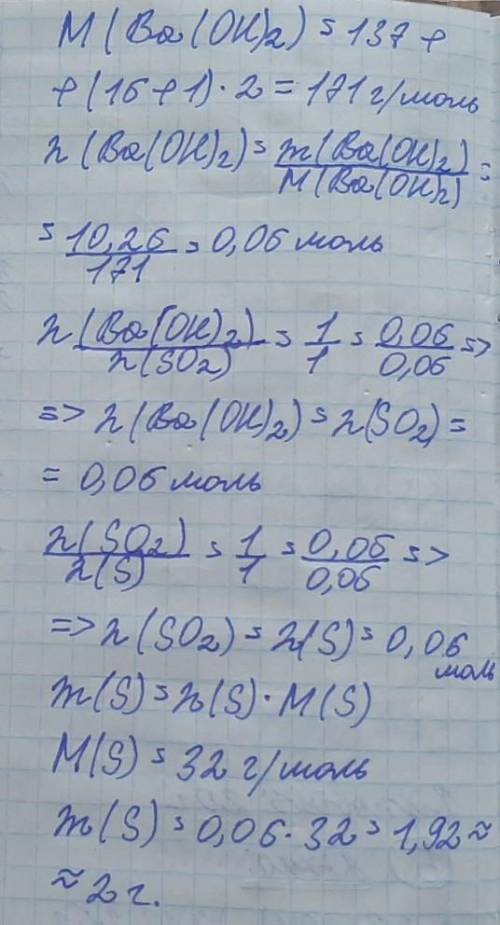 M(Ba(OH)₂) = 137 +
+ (16 + 1) · 2 = 171 г/моль
n(Ba(OH)₂) = m(Ba(OH)₂) / M(Ba(OH)₂) =
= 10,26 / 171 = 0,06 моль
n(Ba(OH)₂) / n(SO₂) = 1/1 = 0,06 / 0,06 =>
=> n(Ba(OH)₂) = n(SO₂) =
= 0,06 моль
n(SO₂) / n(S) = 1/1 = 0,06 / 0,06 =>
=> n(SO₂) = n(S) = 0,06
моль
m(S) = n(S) · M(S)
M(S) = 32 г/моль
m(S) = 0,06 · 32 = 1,92 ≈
≈ 2 г.